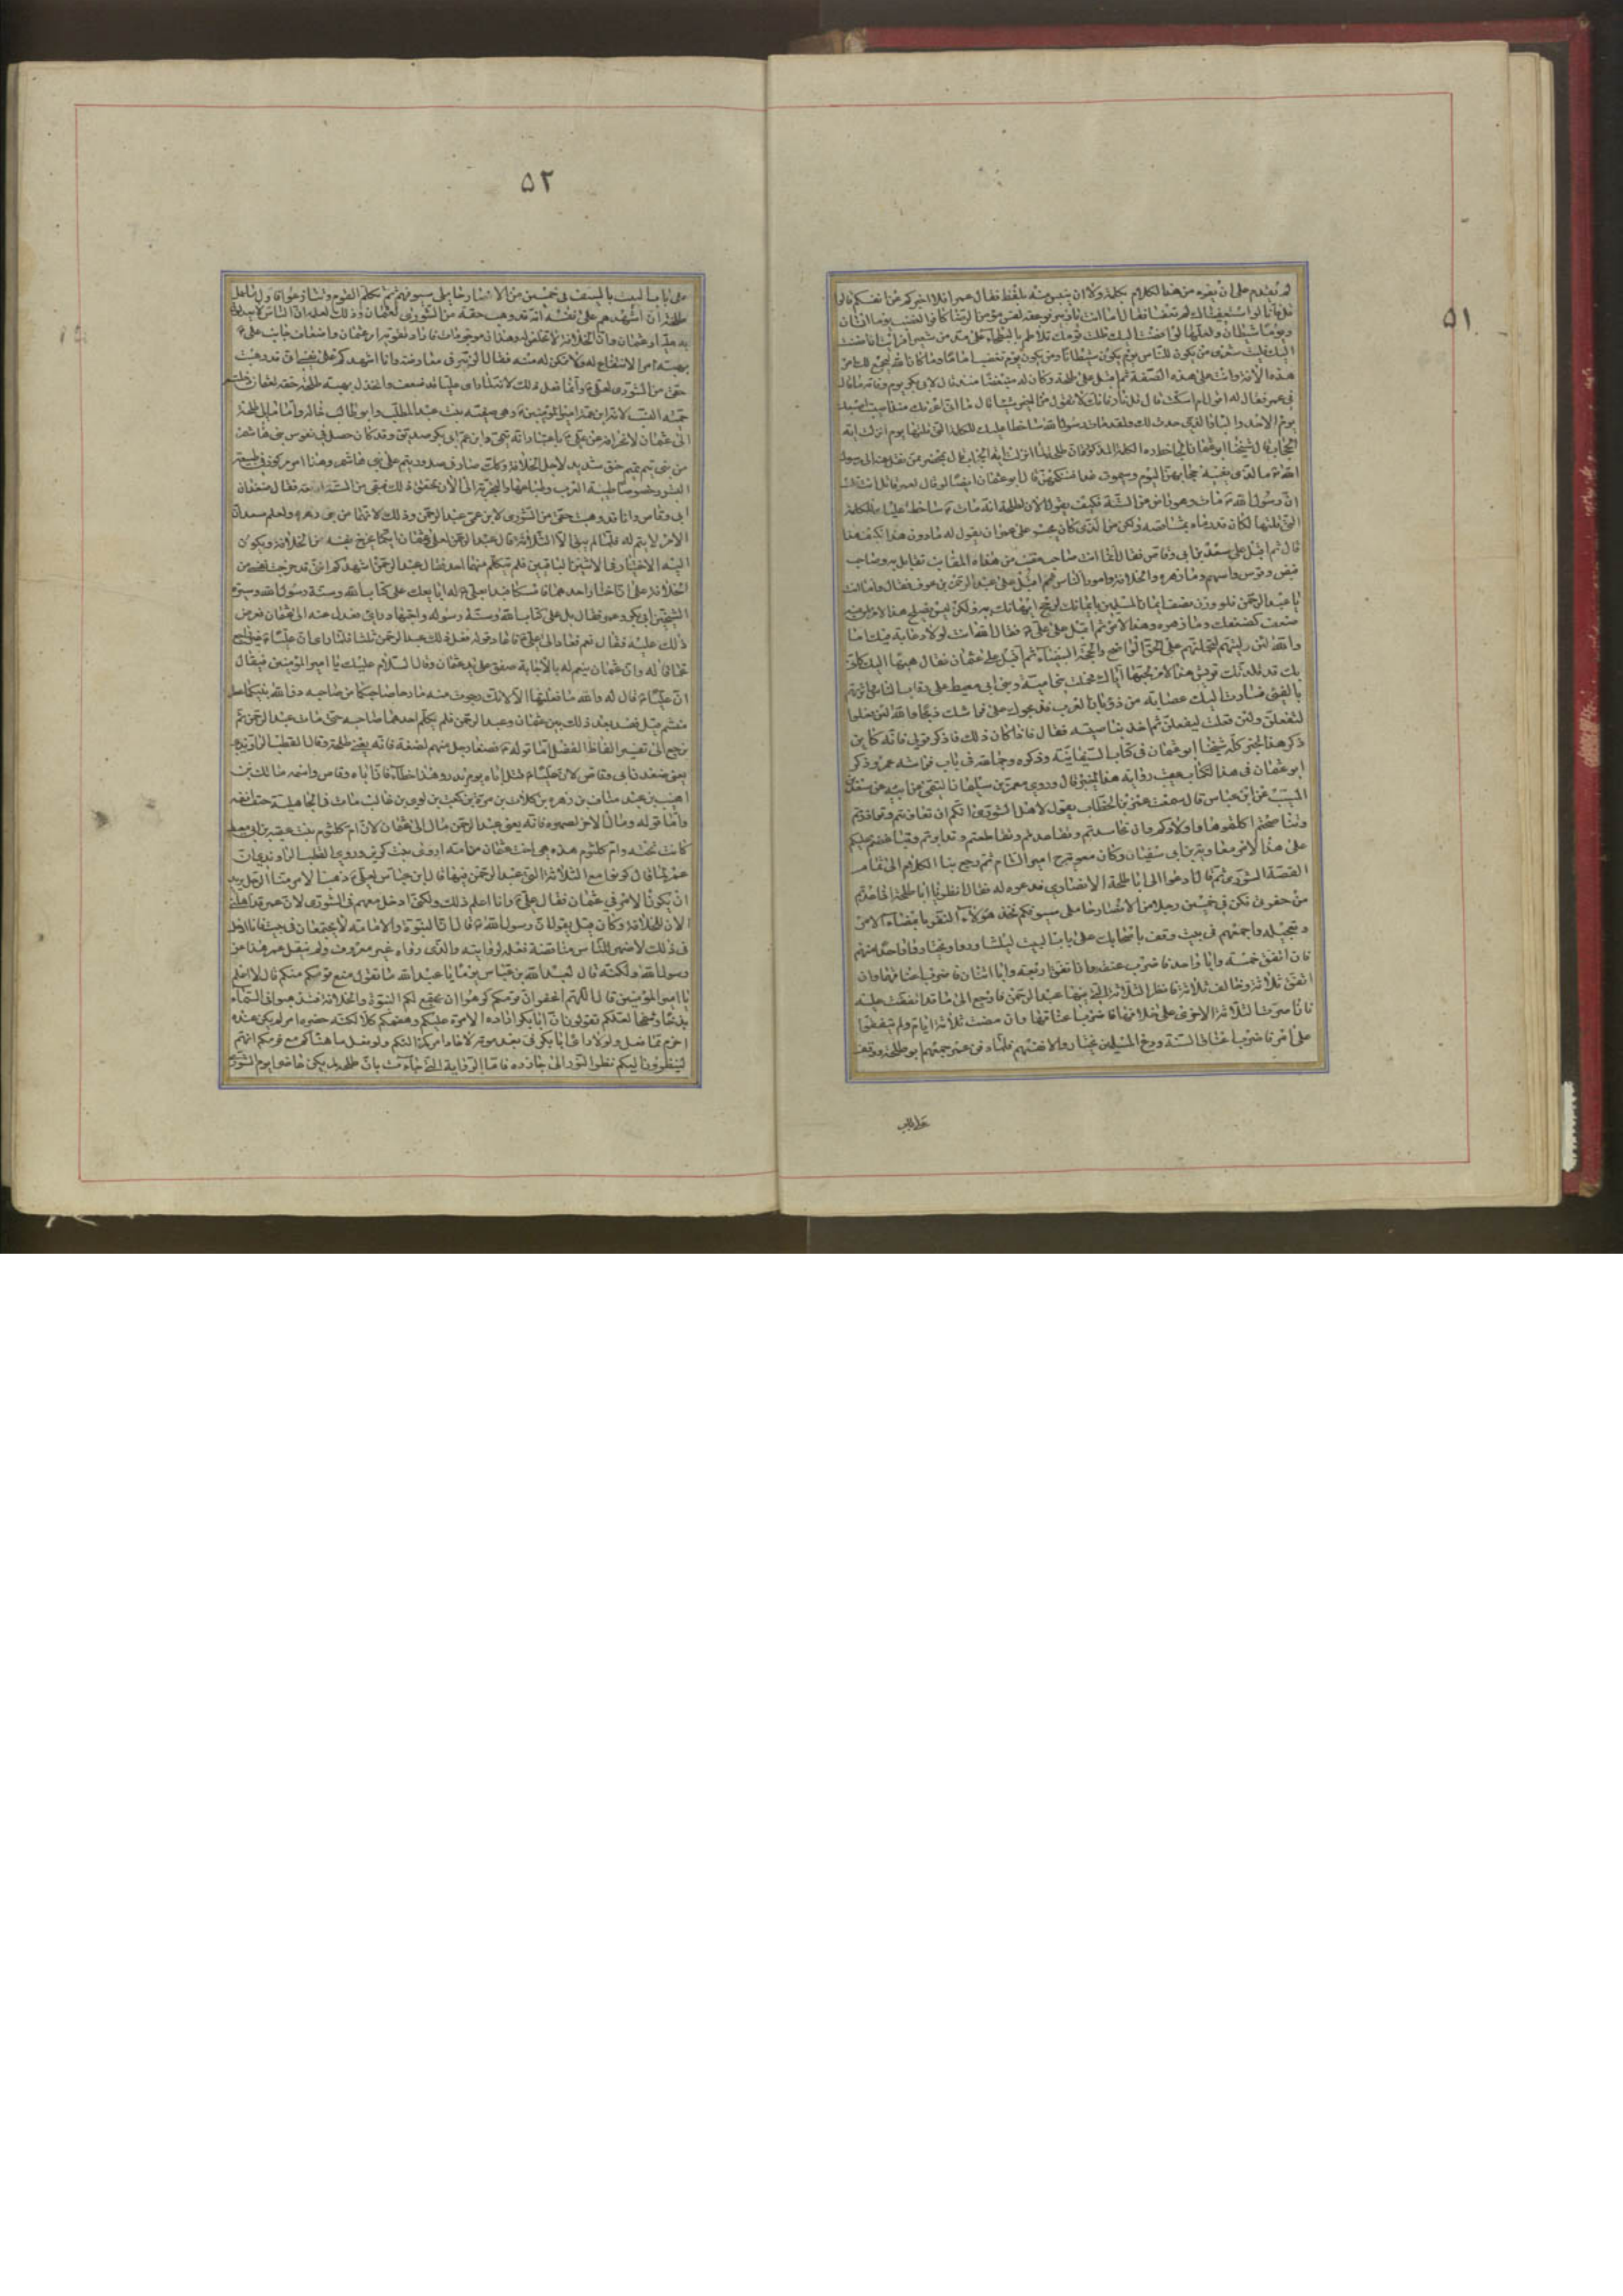 ۵۱
لم يقدم على ان يفوه من هذا الكلام بكلمة ولا ان ينبس منه بلفظ فقال عمر افلا اخبركم عن انفسكم قالوا
قل فانا لو استعفيناك لم تعفنا فقال اما انت يا زبير فوعقة لقس مؤمن الرضا كافر الغضب يوما انسان
ويوما شيطان ولعلها لو افضت اليك ظلت يومك تلاطم بالبطحاء على مد من شعير افرايت ان افضت
اليك فليت شعرى من يكون للناس يوم تكون شيطانا ومن يكون يوم تغضب اماما وما كان الله ليجمع لك امر
هذه الامة وانت على هذه الصفة ثم اقبل على طلحة وكان له مبغضا منذ قال لابى بكر يوم وفاته ما قال
فى عمر فقال له اقول ام اسكت قال قل فانك لا تقول من الخير شيئا قال اما انى اعرفك منذ اصيبت اصبعك
يوم احد والبأو الذى حدث لك ولقد مات رسول الله ساخطا عليك للكلمة التى قلتها يوم انزلت اية
الحجاب قال شيخنا ابو عثمان الكلمة المذكورة ان طلحة لما انزلت اية الحجاب قال بمحضر ممن نقل عنه الى رسول
الله ما الذى يغنيه حجابهن اليوم وسيموت غدا فننكحهن قال ابو عثمان ايضا لو قال لعمر قائل انت قلت
ان رسول الله مات وهو راض عن الستة فكيف تقول الان لطلحة انه مات ساخطا عليك للكلمة
التى قلتها لكان قد رماه بمشاقصه ولكن من الذى كان يجسر على عمر ان يقول له ما دون هذا فكيف هذا
قال ثم اقبل على سعد بن ابى وقاص فقال انما انت صاحب مقنب من هذه المقانب تقاتل به وصاحب
قنص وقوس واسهم وما زهرة والخلافة وامور الناس ثم اقبل على عبد الرحمن بن عوف فقال واما انت
يا عبد الرحمن فلو وزن نصف ايمان المسلمين بايمانك لرجح ايمانك به ولكن ليس يصلح هذا الامر لمن فيه
ضعف كضعفك وما زهرة وهذا الامر ثم اقبل على على فقال لله انت لولا دعابة فيك اما
والله لئن وليتهم لتحملنهم على الحق الواضح والمحجة البيضاء ثم اقبل على عثمان فقال هيها اليك كانى
بك قد قلدتك قريش هذا الامر لحبها اياك فحملت بنى امية وبنى ابى معيط على رقاب الناس واثرتهم
بالفىء فسارت اليك عصابة من ذؤبان العرب فذبحوك على فراشك ذبحا والله لئن فعلوا
لتفعلن ولئن فعلت ليفعلن ثم اخذ بناصيته فقال فاذا كان ذلك فاذكر قولى فانه كاين
ذكر هذا الخبر كله شيخنا ابو عثمان فى كتاب السفيانية وذكره جماعة فى باب فراسة عمر وذكر
ابو عثمان فى هذا الكتاب عقيب رواية هذا الخبر قال وروى معمر بن سليمان التيمى عن ابيه عن سعيد بن
المسيب عن ابن عباس قال سمعت عمر بن الخطاب يقول لاهل الشورى انكم ان تعاونتم وتوازرتم
وتناصحتم اكلتموها واولادكم وان تحاسدتم وتقاعدتم وتقاطعتم وتدابرتم وتباغضتم غلبكم
على هذا الامر معاوية بن ابى سفيان وكان معوية ح امير الشام ثم رجع بنا الكلام الى تمام
القصة الشورى ثم قال ادعوا الى ابا طلحة الانصارى فدعوه له فقال انظر يا ابا طلحة اذا عدتم
من حفرتى فكن فى خمسين رجلا من الانصار حاملى سيوفكم فخذ هؤلاء النفر بامضاء الامر
وتعجيله واجمعهم فى بيت وقف باصحابك على باب البيت ليتشاوروا ويختاروا واحدا منهم
فان اتفق خمسة وابى واحد فاضرب عنقه وان اتفق اربعة وابى اثنان فاضرب اعناقهما وان
اتفق ثلاثة وخالف ثلاثة فانظر الثلاثة التى فيها عبد الرحمن فارجع الى ما قد اتفقت عليه
فان اصرت الثلاثة الاخرى على خلافها فاضرب اعناقها وان مضت ثلاثة ايام ولم يتفقوا
على امر فاضرب اعناق الستة ودع المسلمين يختاروا لانفسهم فلما دفن عمر جمعهم ابو طلحة ووقف
على باب
۵۲
على باب البيت بالسيف فى خمسين من الانصار حاملى سيوفهم ثم تكلم القوم وتنازعوا فاول ما عمل
طلحة ان اشهدهم على نفسه انه قد وهب حقه من الشورى لعثمان وذلك لعلمه ان الناس لا يعدلون
به عليا وعثمان وان الخلافة لا تخلص له وهذان موجودان فاراد تقوية امر عثمان واضعاف جانب على ع
بهبة امر لا انتفاع له ولا تمكن له منه فقال الزبير فى معارضته وانا اشهدكم على نفسى انى قد وهبت
حقى من الشورى لعلى ع وانما فعل ذلك لانه لما راى عليا قد ضعف وانخذل بهبة طلحة حقه لعثمان دخلته
حمية النسب لانه ابن عمة امير المؤمنين ع وهى صفية بنت عبد المطلب وابو طالب خاله وانما مال طلحة
الى عثمان لانحرافه عن على ع باعتبار انه تيمى وابن عم ابى بكر صديق وقد كان حصل فى نفوس بنى هاشم
من بنى تيم حنق شديد لاجل الخلافة وكذلك صار فى صدور تيم على بنى هاشم وهذا امر مركوز فى طبيعة
البشر وخصوصا طينة العرب وطباعها والتجربة الى الان تحقق ذلك فبقى من الستة اربعة فقال سعد بن
ابى وقاص وانا قد وهبت حقى من الشورى لابن عمى عبد الرحمن وذلك لانهما من بنى زهرة ولعلم سعد ان
الامر لا يتم له فلما لم يبق الا الثلاثة قال عبد الرحمن لعلى وعثمان ايكما يخرج نفسه من الخلافة ويكون
اليه الاختيار فى الاثنين الباقيين فلم يتكلم منهما احد فقال عبد الرحمن اشهدكم اننى قد اخرجت نفسى من
الخلافة على ان اختار احدهما فامسكا فبدا بعلى ع وقال له ابايعك على كتاب الله وسنة رسول الله وسيرة
الشيخين ابى بكر وعمر فقال بل على كتاب الله وسنة رسوله واجتهاد رايى فعدل عنه الى عثمان فعرض
ذلك عليه فقال نعم فعاد الى على ع فاعاد قوله فعل ذلك عبد الرحمن ثلثا فلما راى ان عليا ع غير راجع
عما قاله وان عثمان ينعم له بالاجابة صفق على يد عثمان وقال السلام عليك يا امير المؤمنين فيقال
ان عليا ع قال له والله ما فعلتها الا لانك رجوت منه ما رجا صاحبكما من صاحبه دق الله بينكما عطر
منشم قيل ففسد بعد ذلك بين عثمان وعبد الرحمن فلم يكلم احدهما صاحبه حتى مات عبد الرحمن ثم
نرجع الى تفسير الفاظ الفصل اما قوله ع فصغا رجل منهم لضغنه فانه يعنى طلحة وقال القطب الراوندى
يعنى سعد بن ابى وقاص لان عليا ع قتل اباه يوم بدر وهذا خطأ فان اباه وقاص واسمه مالك بن
اهيب بن عبد مناف بن زهرة بن كلاب بن مرة بن كعب بن لوى بن غالب مات فى الجاهلية حتف انفه
واما قوله ومال الاخر لصهره فانه يعنى عبد الرحمن مال الى عثمان لان ام كلثوم بنت عقبة بن ابى معيط
كانت تحته وام كلثوم هذه هى اخت عثمان من امه اروى بنت كريز وروى القطب الراوندى ان
عمر لما قال كونوا مع الثلاثة التى عبد الرحمن فيها قال ابن عباس لعلى ع ذهب الامر منا الرجل يريد
ان يكون الامر فى عثمان فقال على ع وانا اعلم ذلك ولكنى ادخل معهم فى الشورى لان عمر قد اهلنى
الان للخلافة وكان قبل يقول ان رسول الله ع قال ان النبوة والامامة لا يجتمعان فى بيت فانا ادخل
فى ذلك لاظهر للناس مناقضة فعله لروايته والذى رواه غير معروف ولم ينقل عمر هذا عن
رسول الله ولكنه قال لعبد الله بن عباس يوما يا عبد الله ما تقول منع قومكم منكم قال لا اعلم
يا امير المؤمنين قال اللهم اغفر ان قومكم كرهوا ان يجتمع لكم النبوة والخلافة فتذهبوا فى السماء
بذخا وشمخا لعلكم تقولون ان ابا بكر اراد الامرة عليكم وهضمكم كلا لكنه حضره امر لم يكن عنده
احزم مما فعل ولولا راى ابى بكر فى بعد موته لاعاد امركم اليكم ولو فعل ما هناكم مع قومكم انهم
لينظرون اليكم نظر الثور الى جازره فاما الرواية التى جاءت بان طلحة لم يكن حاضرا يوم الشورى